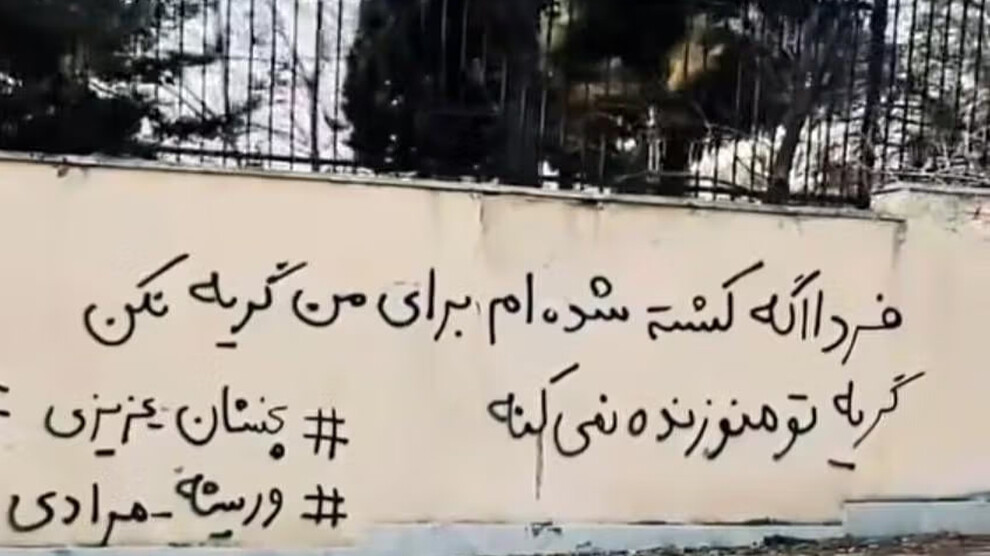 فردا اگه کشته شده ام برای من گریه نکن
گریه تو منو زنده نمی کنه
# پخشان-عزیزی
# وریشه-مرادی